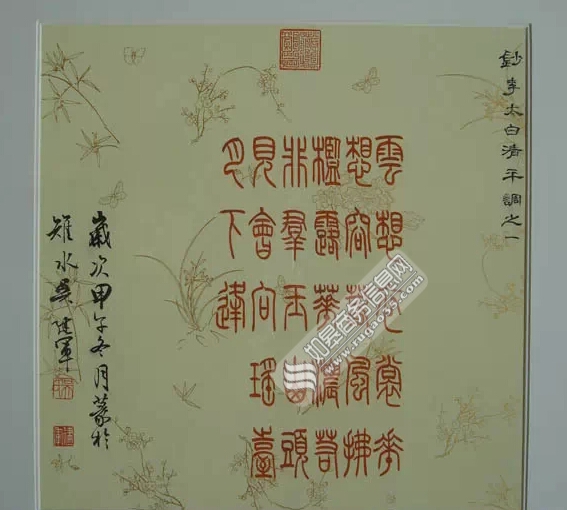 鈔李太白清平調之一
雲想衣裳花
想容春風拂
檻露華濃若
非羣玉山頭
見會向瑤臺
月下逢
歲次甲午冬月篆於
雉水吳建軍
如皋商务信息网
www.rugao35.com